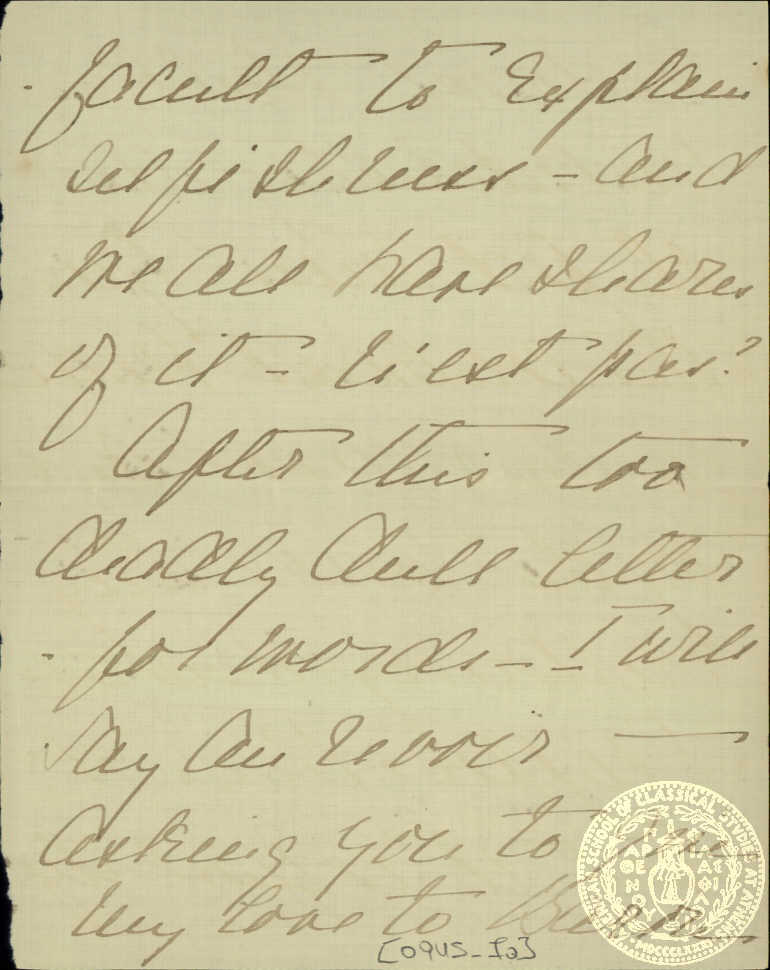 facult to Explain
selfishness - and
we all have shares
of it - N'est pas?
After this too
deadly dull letter
for words - I will
say au revoir —
asking you to give
my love to
[0945_Ia]
AMERICAN SCHOOL OF CLASSICAL STUDIES AT ATHENS
ΠΑΡΘΕΝΟΥ ΦΙΛΑΣ
MDCCCLXXXI